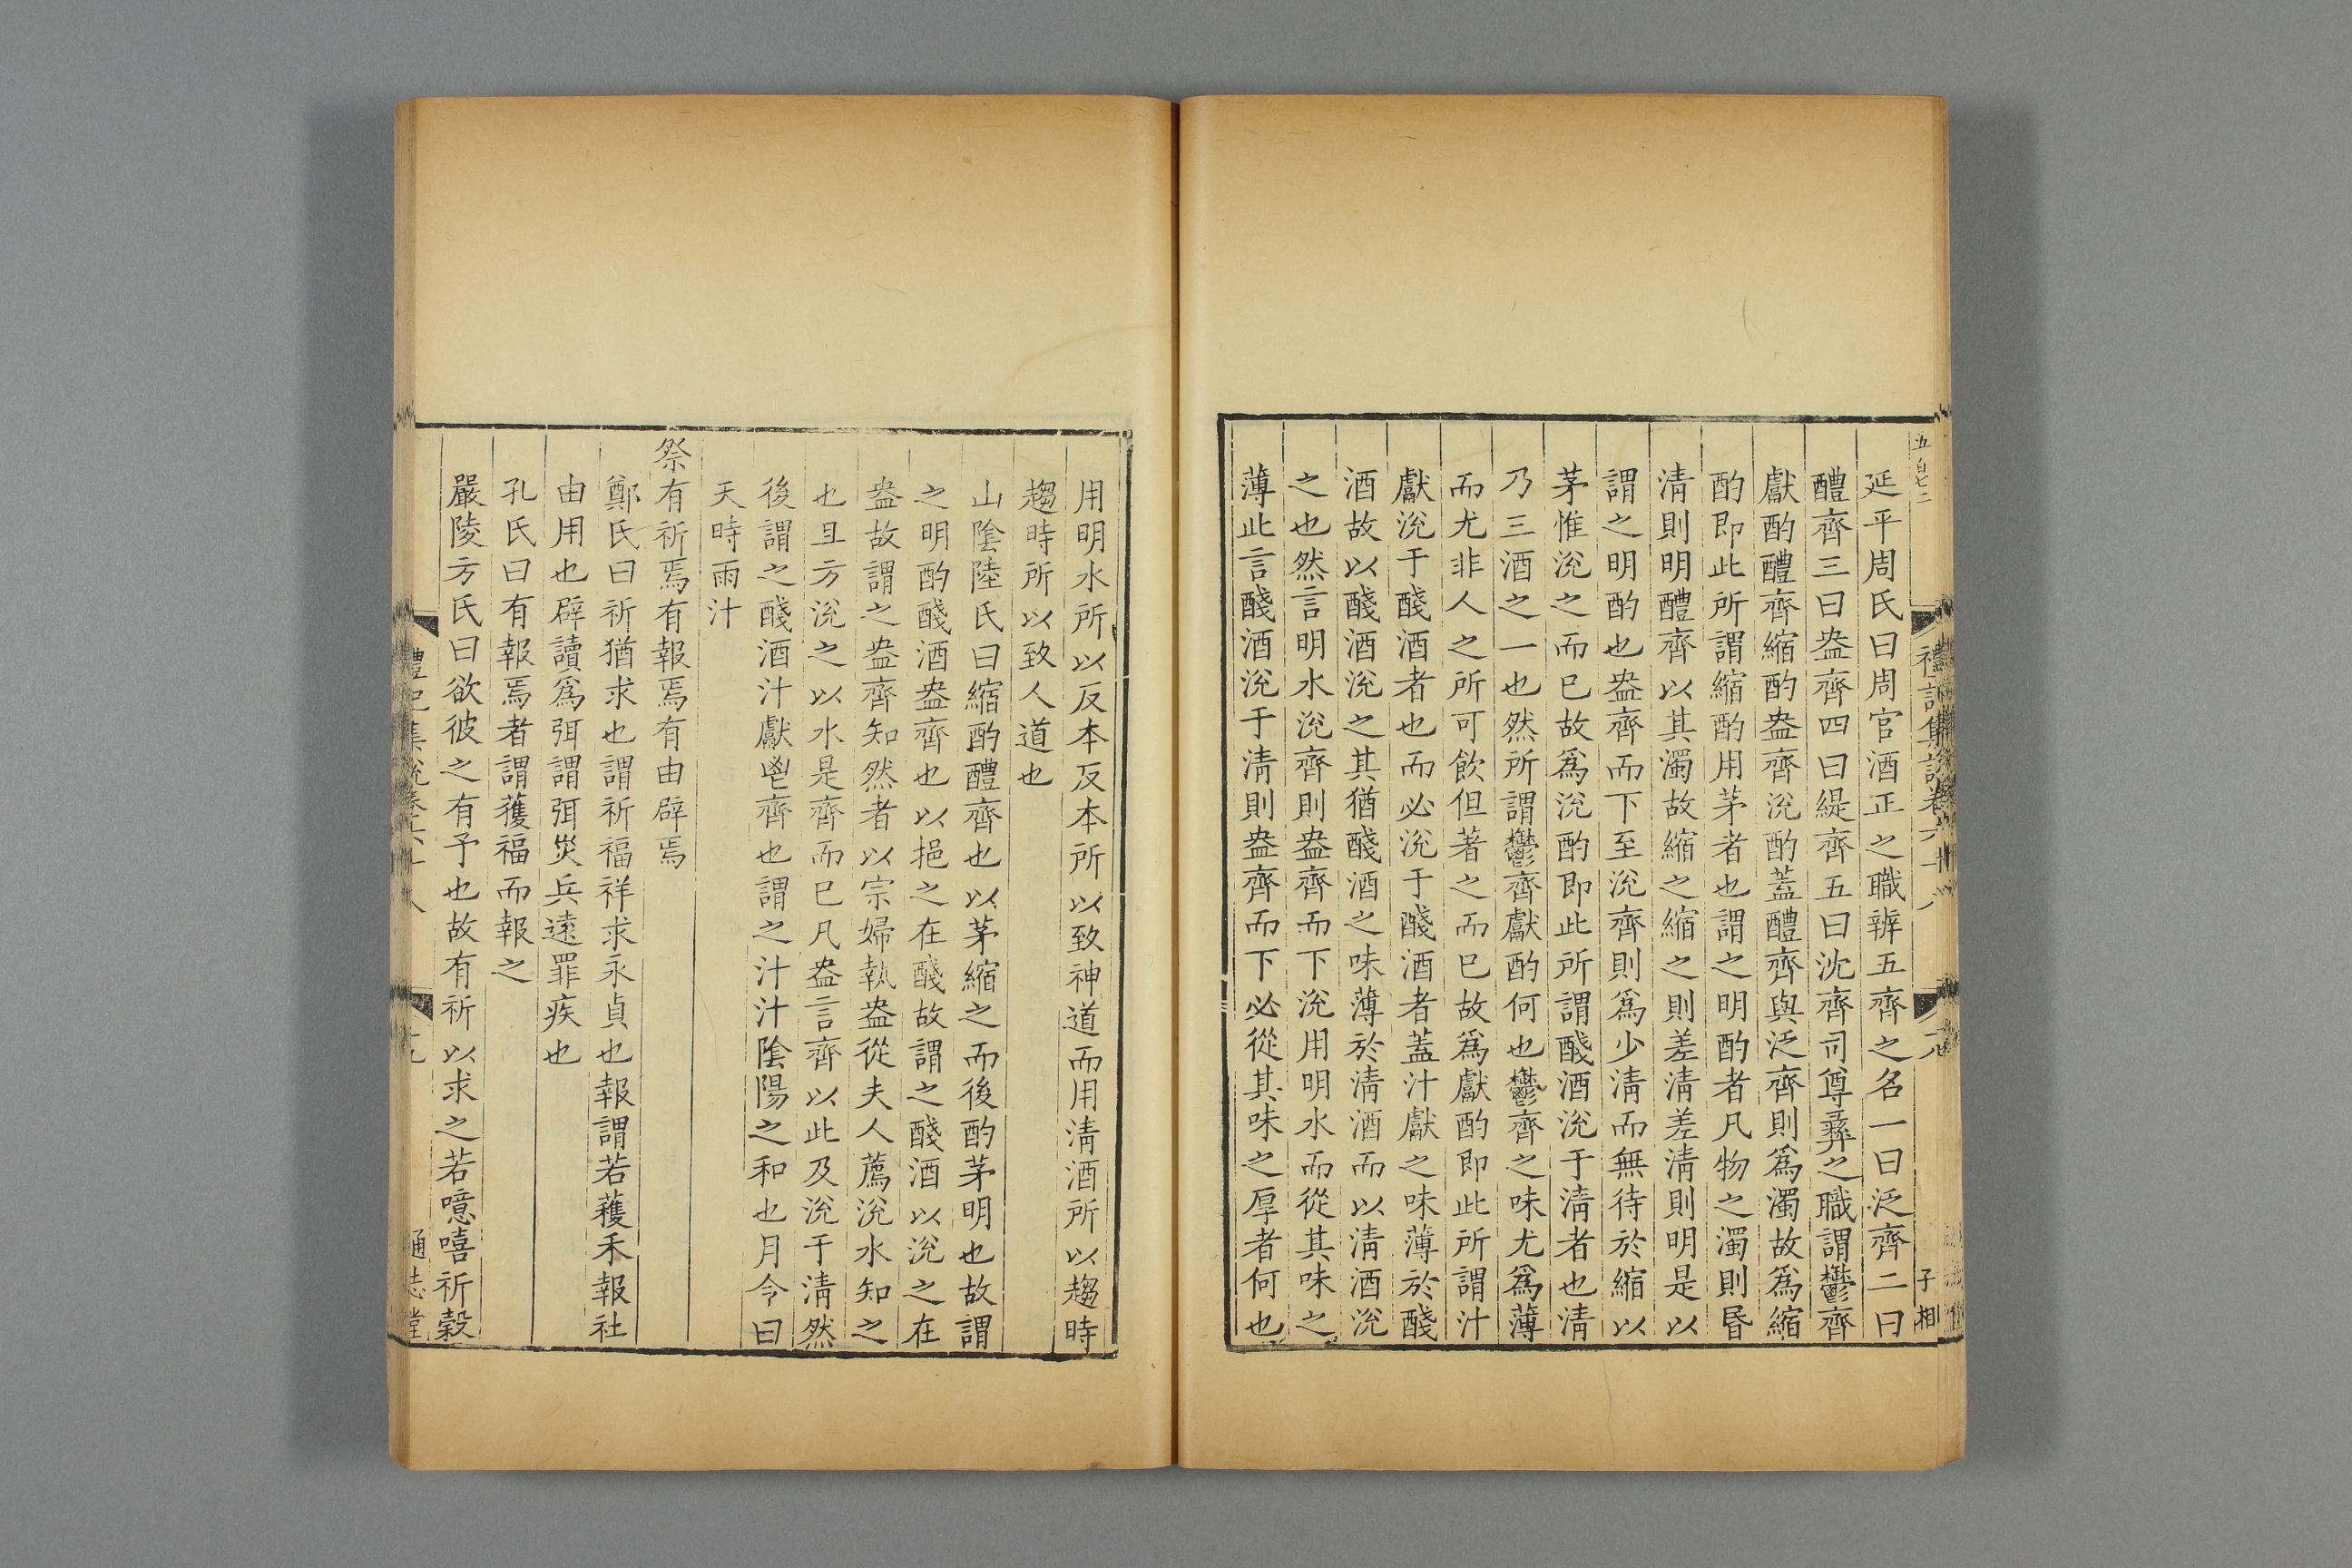 五百七二
禮記集說卷六十八
子相
延平周氏曰周官酒正之職辨五齊之名一曰泛齊二曰
醴齊三曰盎齊四曰緹齊五曰沈齊司尊彞之職謂鬱齊
獻酌醴齊縮酌盎齊涚酌蓋醴齊與泛齊則爲濁故爲縮
酌即此所謂縮酌用茅者也謂之明酌者凡物之濁則昬
淸則明醴齊以其濁故縮之縮之則差淸差淸則明是以
謂之明酌也盎齊而下至涚齊則爲少淸而無待於縮以
茅惟涚之而已故爲涚酌即此所謂醆酒涚于淸者也淸
乃三酒之一也然所謂鬱齊獻酌何也鬱齊之味尤爲薄
而尤非人之所可飲但著之而已故爲獻酌即此所謂汁
獻涚于醆酒者也而必涚于醆酒者蓋汁獻之味薄於醆
酒故以醆酒涚之其猶醆酒之味薄於淸酒而以淸酒涚
之也然言明水涚齊則盎齊而下涚用明水而從其味之
薄此言醆酒涚于淸則盎齊而下必從其味之厚者何也
用明水所以反本反本所以致神道而用淸酒所以趨時
趨時所以致人道也
山陰陸氏曰縮酌醴齊也以茅縮之而後酌茅明也故謂
之明酌醆酒盎齊也以挹之在醆故謂之醆酒以涚之在
盎故謂之盎齊知然者以宗婦執盎從夫人薦涚水知之
也且方涚之以水是齊而已凡盎言齊以此及涚于淸然
後謂之醆酒汁獻鬯齊也謂之汁汁陰陽之和也月令曰
天時雨汁
祭有祈焉有報焉有由辟焉
鄭氏曰祈猶求也謂祈福祥求永貞也報謂若穫禾報社
由用也辟讀爲弭謂弭災兵遠罪疾也
孔氏曰有報焉者謂獲福而報之
嚴陵方氏曰欲彼之有予也故有祈以求之若噫嘻祈穀
禮記集說卷六十八
通志堂